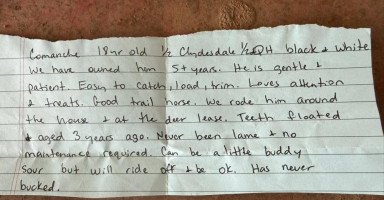 Comanche 18yr old 1/2 Clydesdale 1/2 QH black & white
We have owned him 5+ years. He is gentle &
patient. Easy to catch, load, trim. Loves attention
& treats. Good trail horse. We rode him around
the house & at the deer lease. Teeth floated
& aged 3 years ago. Never been lame & no
maintenance required. Can be a little buddy
sour but will ride off & be ok. Has never
bucked.